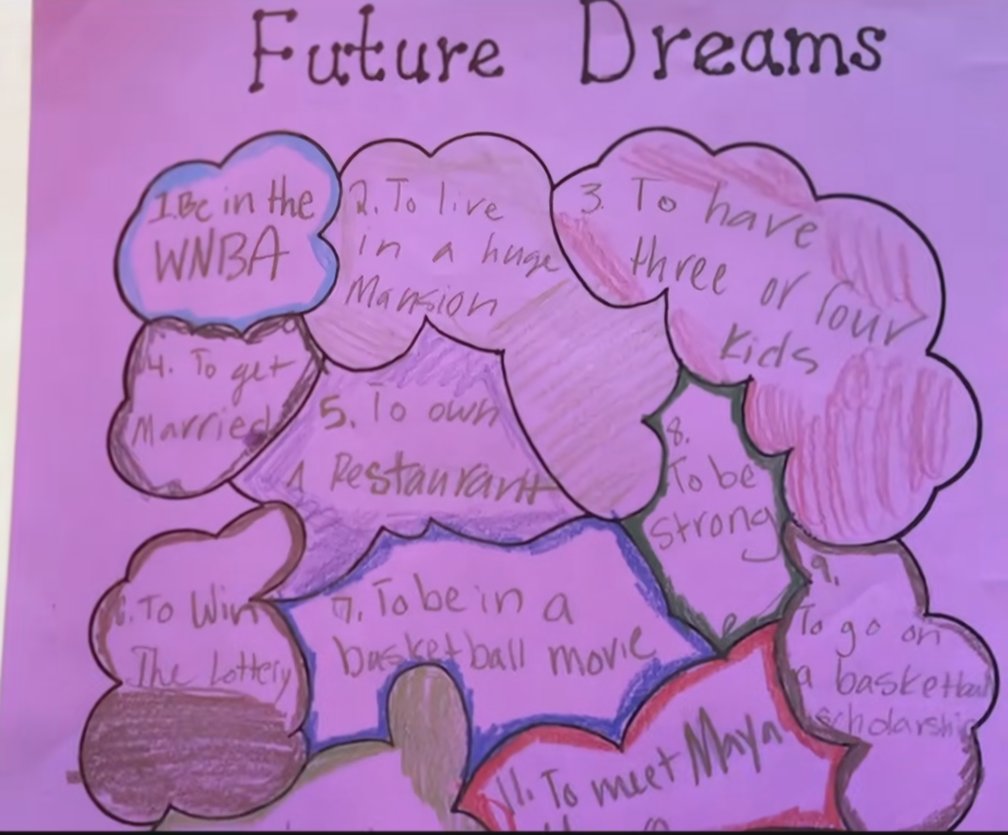 Future Dreams
1. Be in the
WNBA
2. To live
in a huge
Mansion
3. To have
three or four
Kids
4. To get
Married
5. To own
A Restaurant
6. To Win
The Lottery
7. To be in a
basketball movie
8.
To be
strong
9.
To go on
a basketball
scholarship
11. To meet Maya